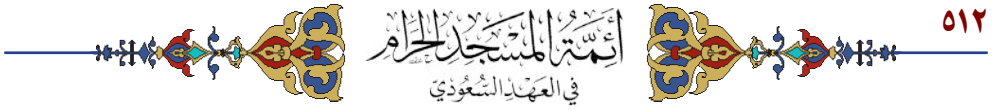 ٥١٢
أَئِمَّةُ المَسْجِدِ الحَرَامِ
في العَهْدِ السُّعُودِيّ